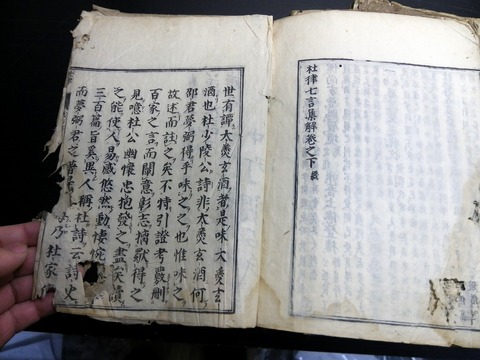 杜律七言集解卷之下終
世有譚大羹玄酒者是味大羹玄
酒也杜少陵公詩非大羹玄酒何
邵君夢弼得乎味之之也惟味之
故述而註之矣不特引證考覈刪
百家之言而關意彰志摘得之
見噫杜公幽懷忠抱發之盡矣讀
之能使人易感悠然動悽惋
三百篇旨異人稱杜詩云詩史
而夢弼君之乃杜家